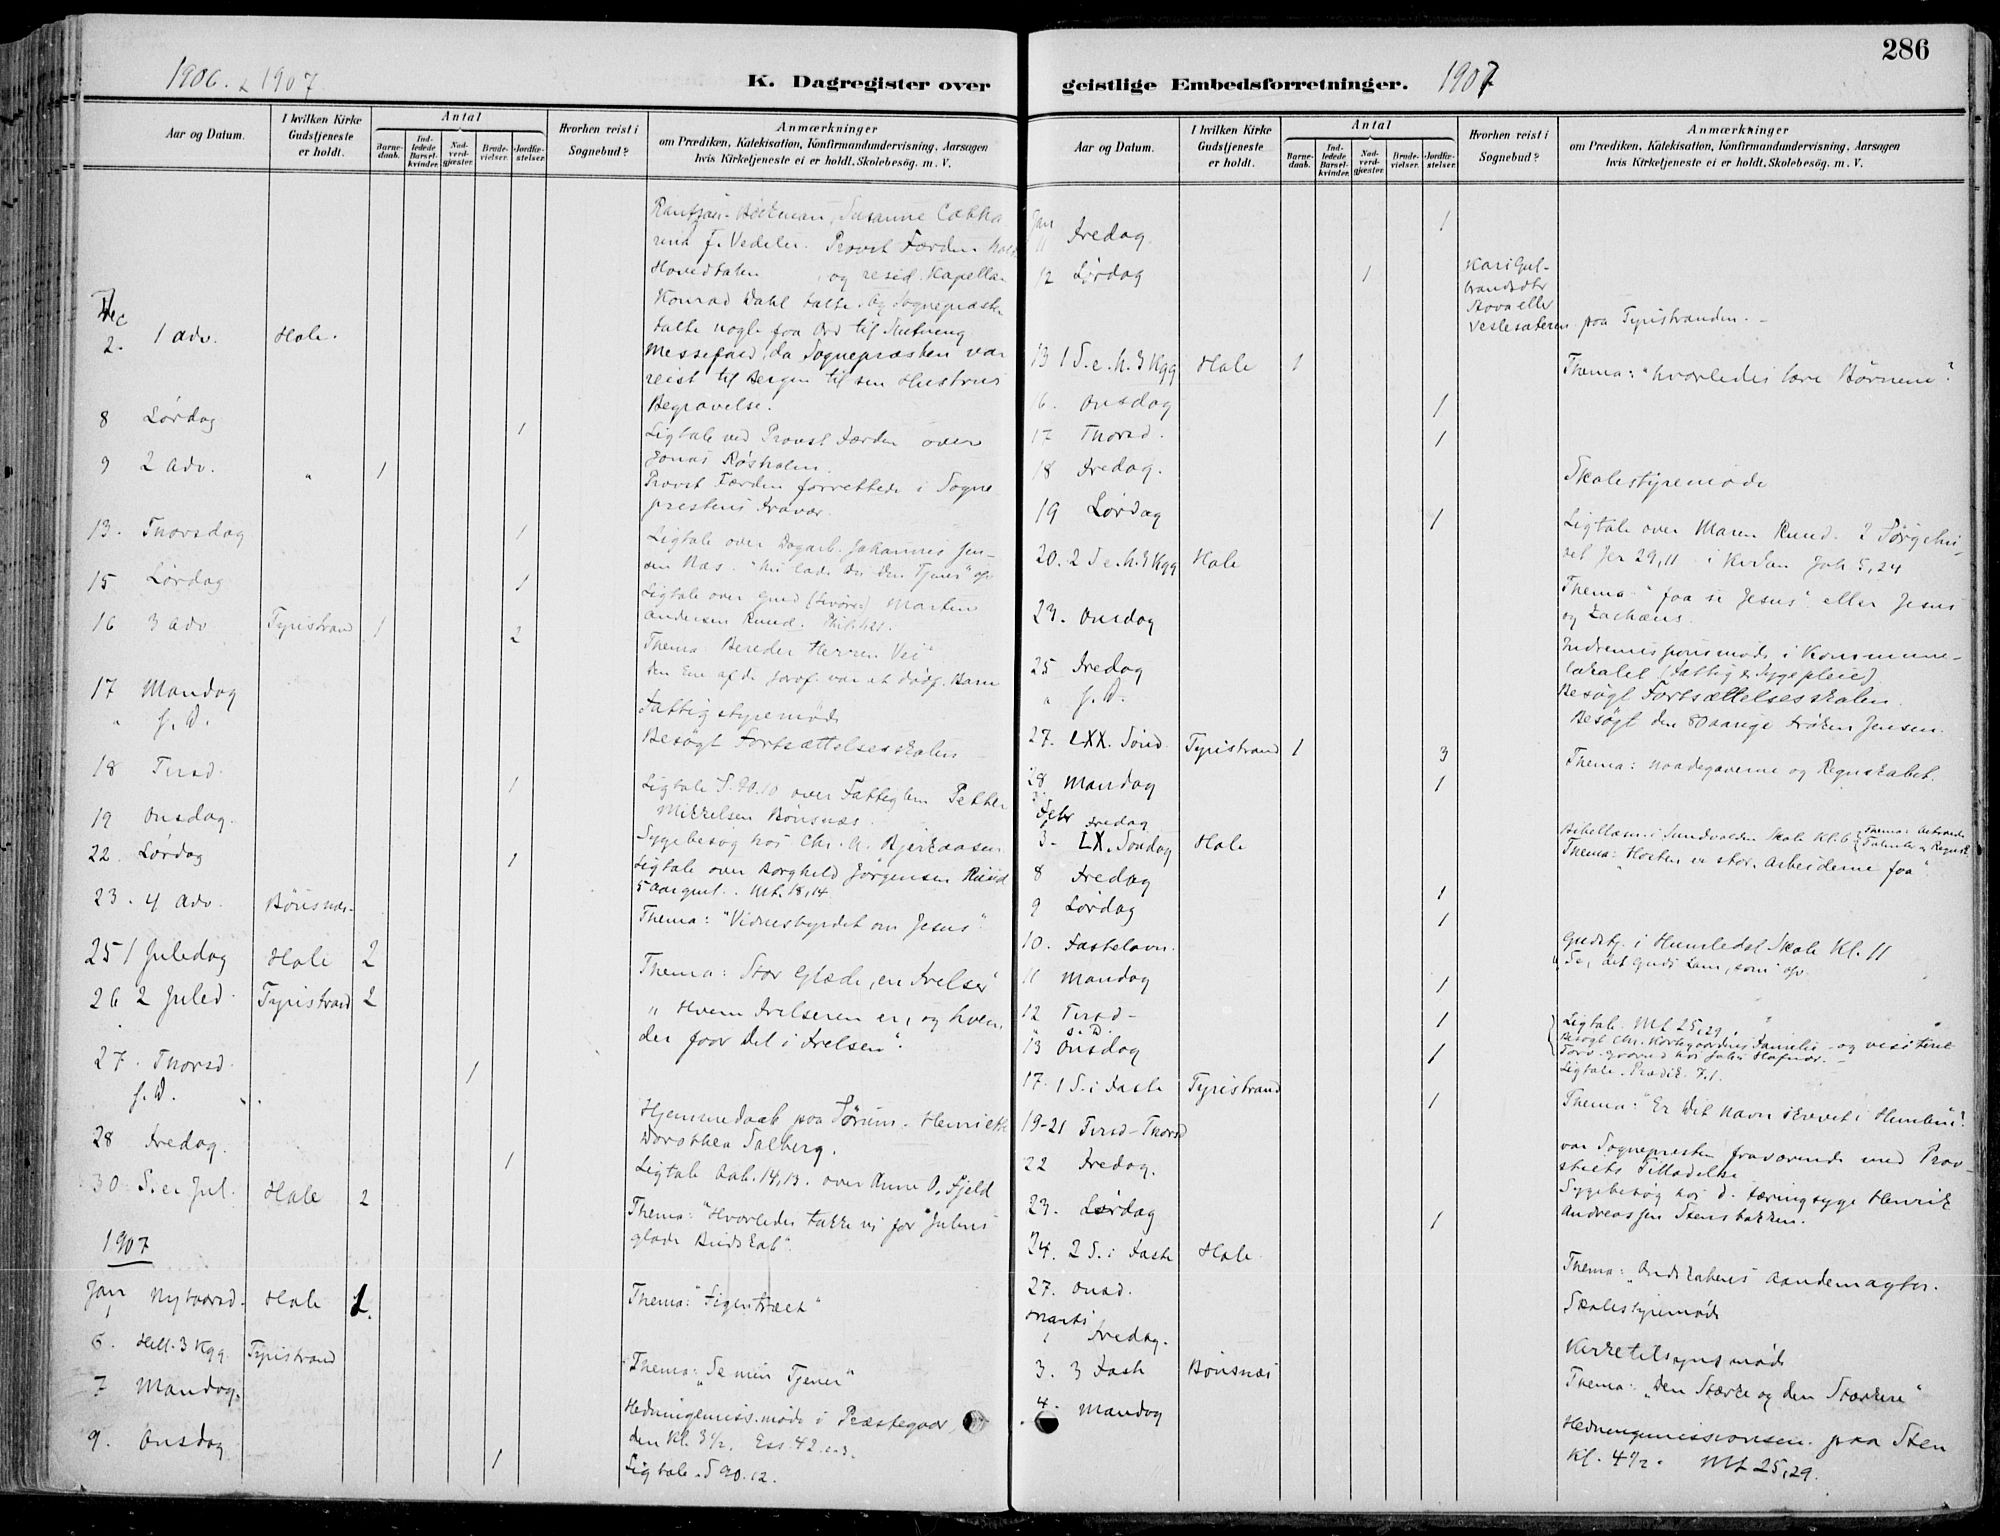 286
1906 & 1907
K. Dagregister over geistlige Embedsforretninger. 1907
Aar og Datum.
I hvilken Kirke Gudstjeneste er holdt.
Antal
Barne-daab.
Ind-ledede Barsel-kvinder.
Nad-verd-gjæster.
Brude-vielser.
Jordfæ-stelser.
Hvorhen reist i Sognebud?
Anmærkninger
om Prædiken, Katekisation, Konfirmandundervisning. Aarsagen
hvis Kirketjeneste ei er holdt. Skolebesøg. m. V.
Susanne Catha
rina f. Vedeler. Provst Færden holdt
Hovedtalen og resid. Kapellan
Konrad Dahl talte. Og Sognepræsten
talte nogle faa Ord til Slutning
Dec
2. 1 Adv. Hole.
Messefald, da Sognepræsten var
reist til Bergen til sin Hustrus
Begravelse.
8 Lørdag 1
Ligtale ved Provst Færden over
Jonas Røsholm.
9 2 Adv. " 1
Provst Færden forrettede i Sogne
prestens Fravær.
13. Thorsdag 1
Ligtale over Dagarb. Johannes Jen-
sen Næs. "Nu lader du din Tjener" osv
15 Lørdag 1
Ligtale over Gmd Martin
Andersen Rund.
16 3 Adv Tyristrand 1 2
Thema: Bereder Herren Vei"
den Ene af de Jordf. var et dødf. Barn
17 Mandag
Fattigstyremøde
" s. D.
Besøgt Fortsættelsesskolen
18 Tirsd. 1
Ligtale over Fattiglem Petter
Mikkelsen Bønsnæs.
19 Onsdag.
Sygebesøg hos Chr. A. Bjerkaasen.
22. Lørdag 1
Ligtale over Borghild Jørgensen Rusid
5 Aar gml. Mt. 18,14.
23. 4 Adv. Bønsnæs.
Thema: "Vidnesbyrdet om Jesus".
25 1 Juledag Hole 2
Thema: Stor Glæde, en Frelser"
26 2 Juled. Tyristrand 2
" Hvem Frelseren er, og hvem
der faar Del i Frelsen".
27. Thorsd. 1
s. D.
Hjemmedaab paa Sørum. Henriette
Dorothea Solberg.
28 Fredag. 1
Ligtale Aab. 14,13. over Anne O. Fjeld
30. S. e. Jul. Hole 2
Thema: "Hvorledes takke vi for Julens
glade Budskab".
1907
Jan
1 Nytaarsd. Hole 1.
Thema: "Figentræet"
6. Hell. 3 Kgg. Tyristrand
Thema: "Se min Tjener"
7 Mandag.
Hedningemiss.møde i Præstegaar
den Kl. 3½. Ess. 42
9. Onsdag 1
Ligtale. S 90.12.
Aar og Datum.
I hvilken Kirke Gudstjeneste er holdt.
Antal
Barne-daab.
Ind-ledede Barsel-kvinder.
Nad-verd-gjæster.
Brude-vielser.
Jordfæ-stelser.
Hvorhen reist i Sognebud?
Anmærkninger
om Prædiken, Katekisation, Konfirmandundervisning. Aarsagen
hvis Kirketjeneste ei er holdt. Skolebesøg. m. V.
Jan
11 Fredag. 1
12 Lørdag 1
Kari Gul-
brandsdtr
Stova eller
Veslesæteren paa Tyristranden.
13 1 S. e. h. 3 Kgg Hole 1
Thema: "Hvorledes lære Børnene"?
16. Onsdag 1
17 Thorsd. 1
18 Fredag.
Skolestyremøde
19 Lørdag 1
Ligtale over Maren Rund. I Sørgehu-
set Jer 29,11. i Kirken Joh 5,24
20. 2 S e. h. 3 Kgg Hole
Thema "faa se Jesus" eller Jesus
og Zachæus.
23. Onsdag
Indremissionsmøde i Kommune-
lokalet (Fattig & Sygepleie).
25 Fredag
Besøgt Fortsættelsesskolen.
" s. D.
Besøgt den 80 aarige Frøken Jensen.
27. LXX. Sønd. Tyristrand 1 3
Thema: Naadegaverne og Regnskabet.
28 Mandag 1
Febr
1 Fredag
Bibellæsn. i Sundvolden Skole Kl. 6
3. LX. Søndag Hole
Thema: "Høsten er stor. Arbeiderne faa".
8 Fredag 1
9 Lørdag 1
10. Fastelavn.
Gudstj. i Humledal Skole Kl. 11
"Se, det Guds Lam, som" osv.
11 Mandag 1
12 Tirsd- 1
Ligtale. Mt 25,29.
" s. D.
Besøgt Chr. Kirkegaardens Familie og visiteret
13 Onsdag 1
Ligtale. Prædik. 7.1.
17. 1 S. i Faste Tyristrand 1
Thema: "Er dit Navn skrevet i Himlen"?
19-21 Tirsd-Thorsd
var Sognepresten fraværende med Prov-
stiets Tilladelse
22 Fredag.
Sygebesøg hos d. tæringssyge Henrik
Andreassen Stensbakken.
23. Lørdag 1
24. 2 S. i Faste Hole
Thema: "Ondskabens Aandemagter.
27. Onsd.
Skolestyremøde
Marts
1 Fredag.
Kirketilsynsmøde
3. 3 Fast Bønsnæs
Thema: "Den Stærke og den Stærkere"
4. Mandag
Hedningemissionsfen. paa Sten
Kl. 4½. Mt 25,29.